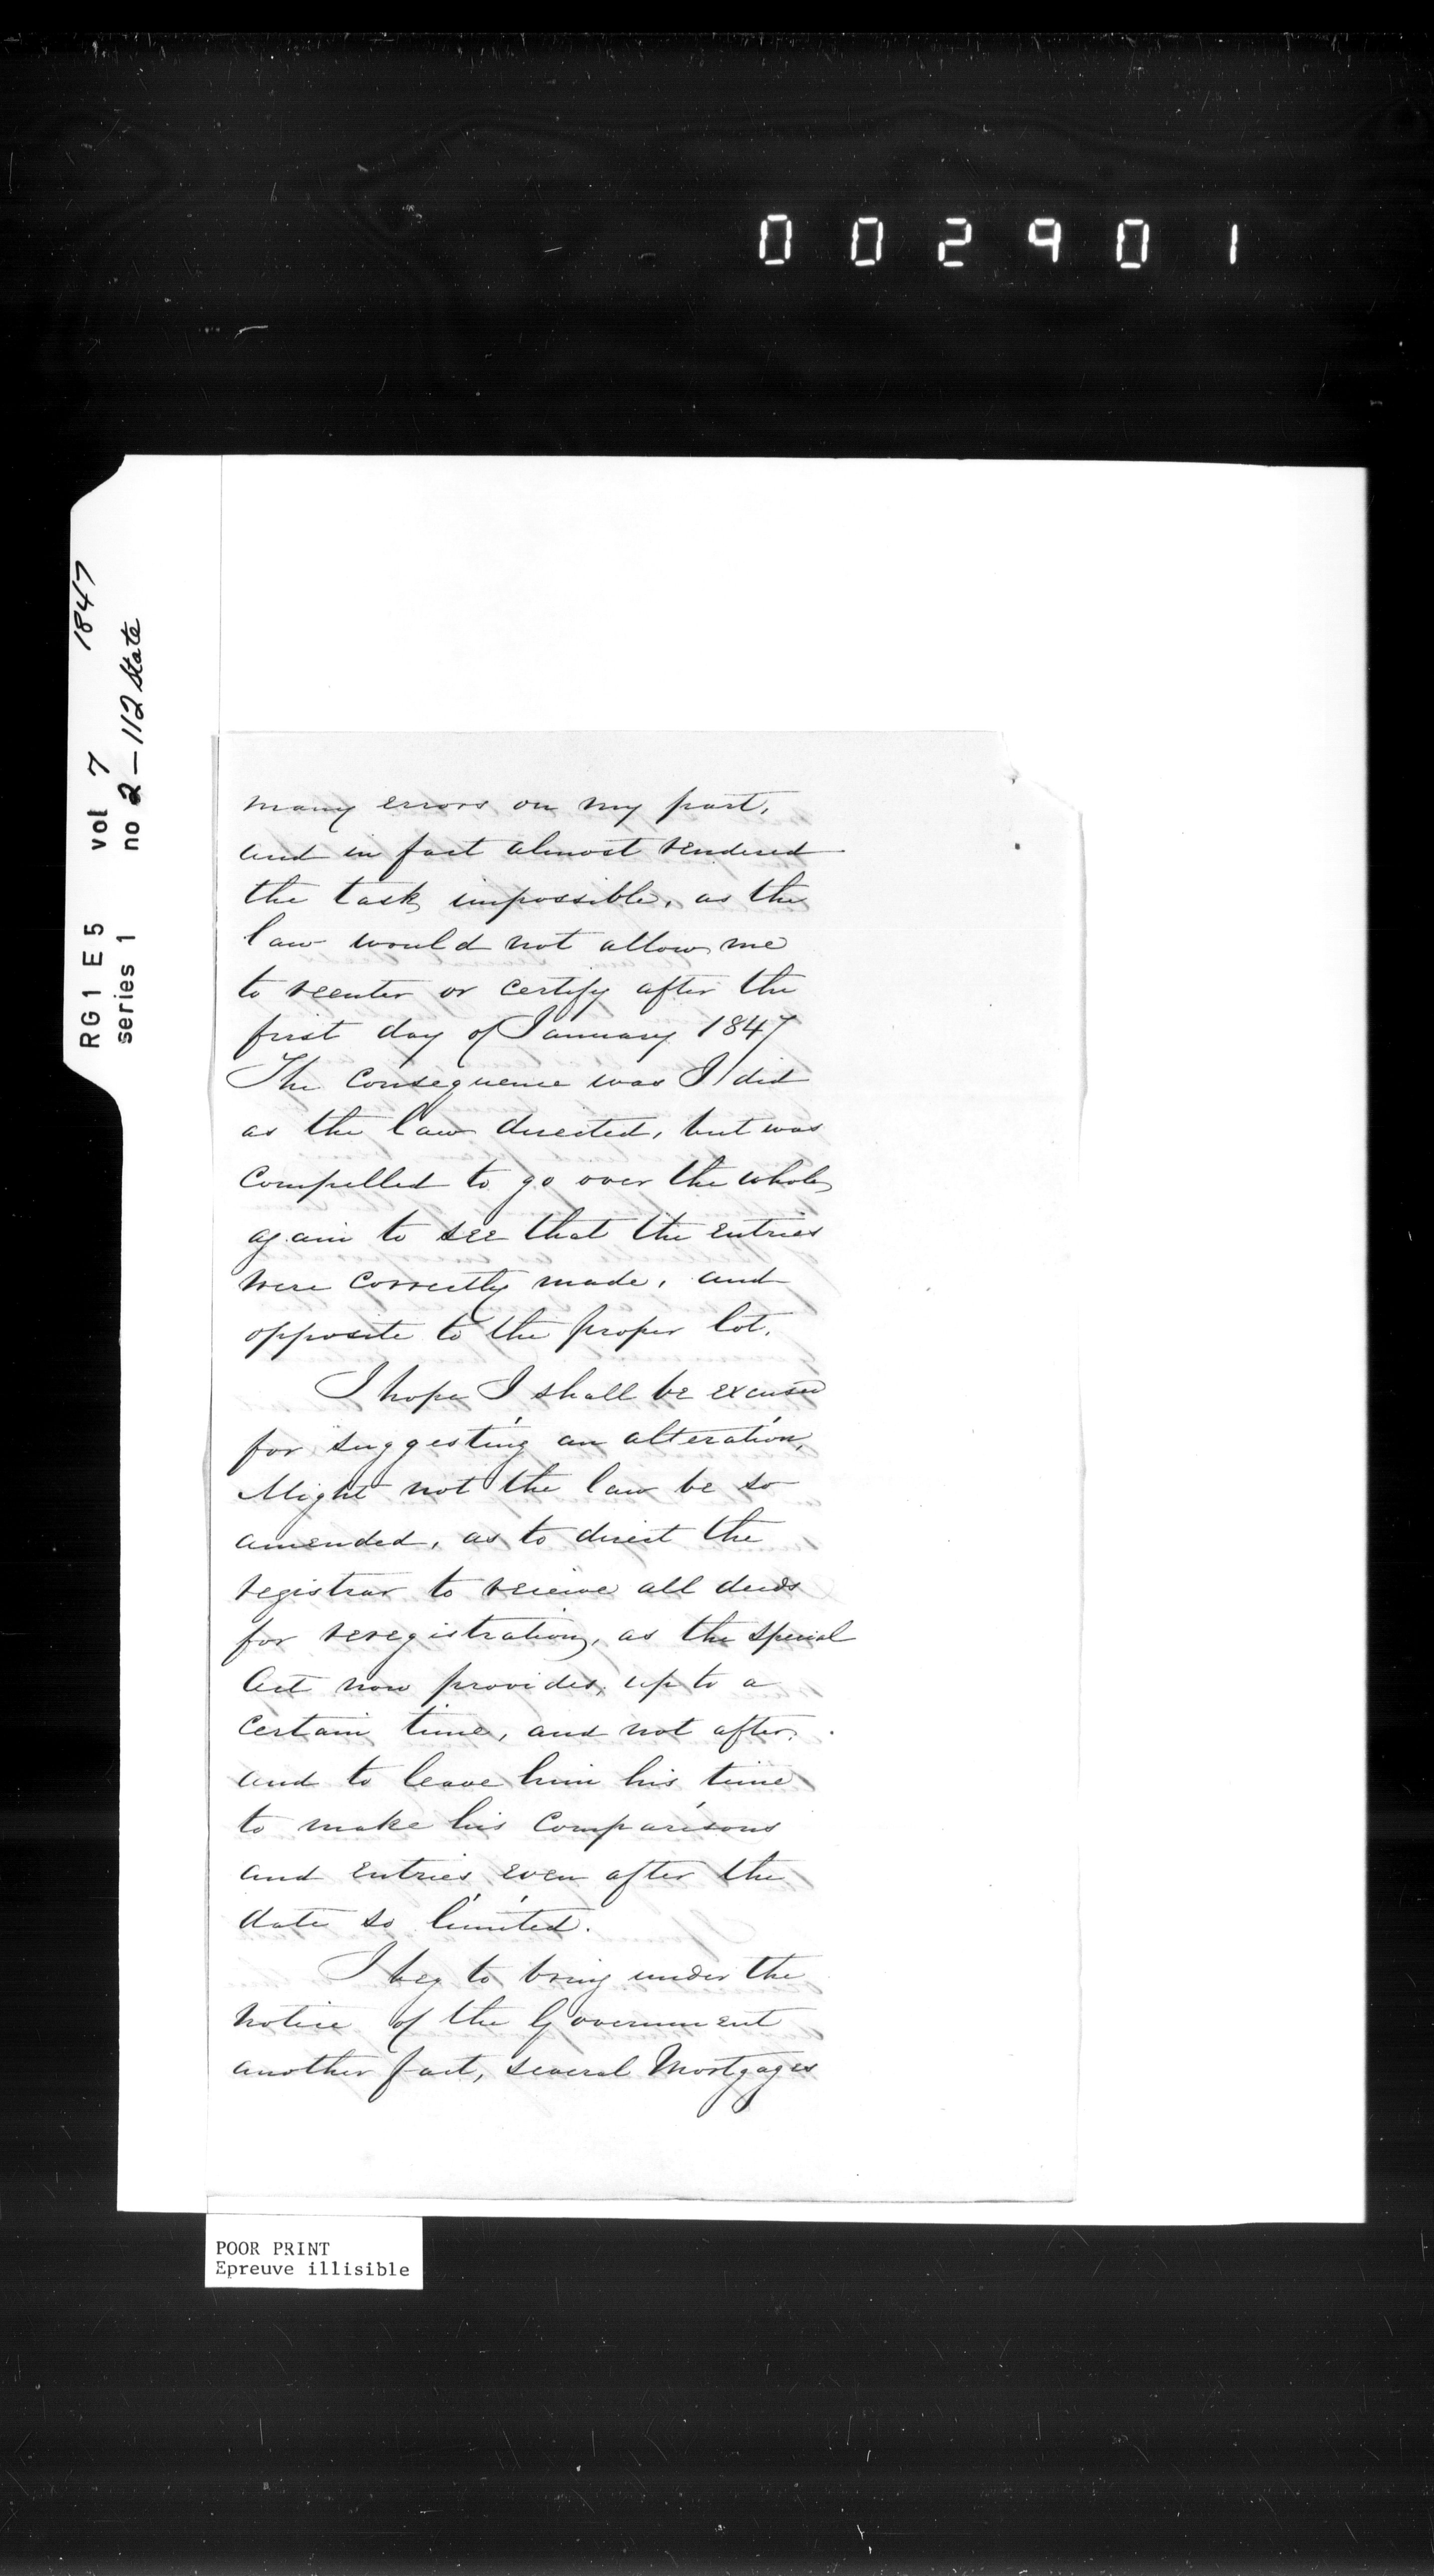 002901
RG1 E5 vol 7 1847
series 1 no 2-112 State
many errors on my part,
and in fact almost rendered
the task impossible, as the
law would not allow me
to reenter or certify after the
first day of January 1847
The consequence was I did
as the law directed, but was
compelled to go over the whole
again to see that the entries
were correctly made, and
opposite to the proper lot.
I hope I shall be excused
for suggesting an alteration,
Might not the law be so
amended, as to direct the
registrar to receive all deeds
for reregistration, as the special
Act now provides, up to a
certain time, and not after,
and to leave him his time
to make his comparisons
and entries even after the
date so limited.
I beg to bring under the
notice of the Government
another fact, several Mortgages
POOR PRINT
Epreuve illisible